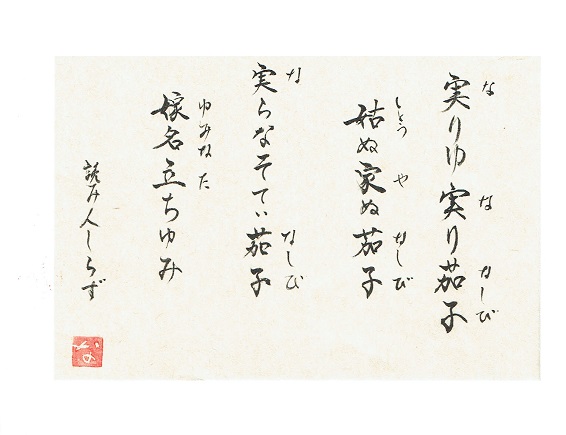 実りゆ実り茄子
な な なしび
姑ぬ家ぬ茄子
しとぅ や なしび
実らなそてぃ茄子
な なしび
嫁名立ちゆみ
ゆみなた
読み人しらず
な